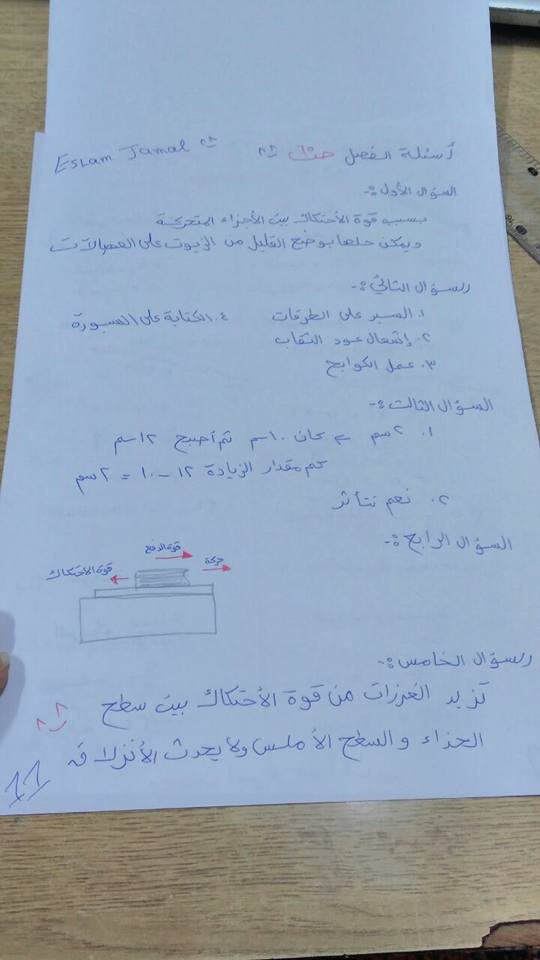 أسئلة الفصل ص ٦٦
Eslam Jamal
السؤال الأول:-
بسبب قوة الأحتكاك بين الأجزاء المتحركة
ويمكن حلها بوضع القليل من الزيوت على العجلات
السؤال الثاني:-
١. السير على الطرقات
٤. الكتابة على السبورة
٢. إشعال عود الثقاب
٣. عمل الكوابح
السؤال الثالث:-
١. ٢سم كان ١٠سم ثم أصبح ١٢سم
كم مقدار الزيادة ١٢ - ١٠ = ٢سم
٢. نعم تتأثر
السؤال الرابع:-
قوة الدفع
حركة
قوة الاحتكاك
السؤال الخامس:-
تزيد الغرزات من قوة الأحتكاك بين سطح
الحذاء والسطح الأملس ولا يحدث الأنزلاق